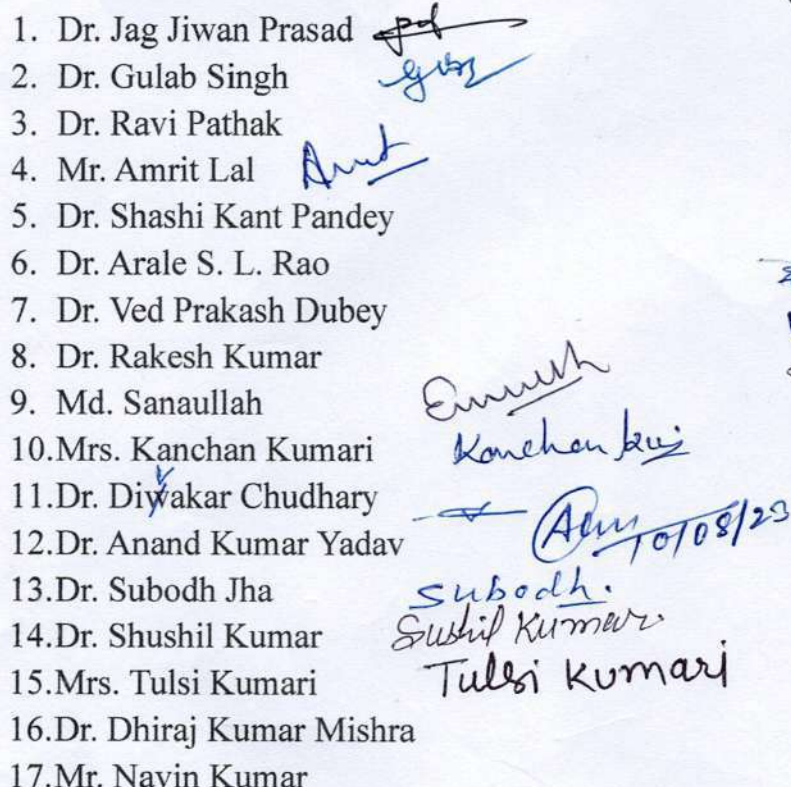 1. Dr. Jag Jiwan Prasad
2. Dr. Gulab Singh
3. Dr. Ravi Pathak
4. Mr. Amrit Lal
5. Dr. Shashi Kant Pandey
6. Dr. Arale S. L. Rao
7. Dr. Ved Prakash Dubey
8. Dr. Rakesh Kumar
9. Md. Sanaullah
10.Mrs. Kanchan Kumari Kanchan
11.Dr. Diwakar Chudhary
12.Dr. Anand Kumar Yadav 10/08/23
13.Dr. Subodh Jha Subodh.
14.Dr. Shushil Kumar Sushil Kumar
15.Mrs. Tulsi Kumari Tulsi Kumari
16.Dr. Dhiraj Kumar Mishra
17.Mr. Navin Kumar